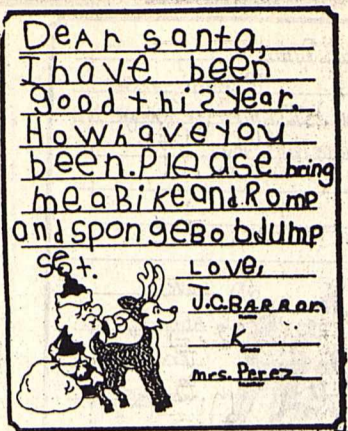 DeAr santa,
I have been
good thi2 year.
How have you
been. Please bring
me a Bike and. Romp
and sponge Bob Jump
set.
Love,
J.C. BARRON
K
mrs. Perez